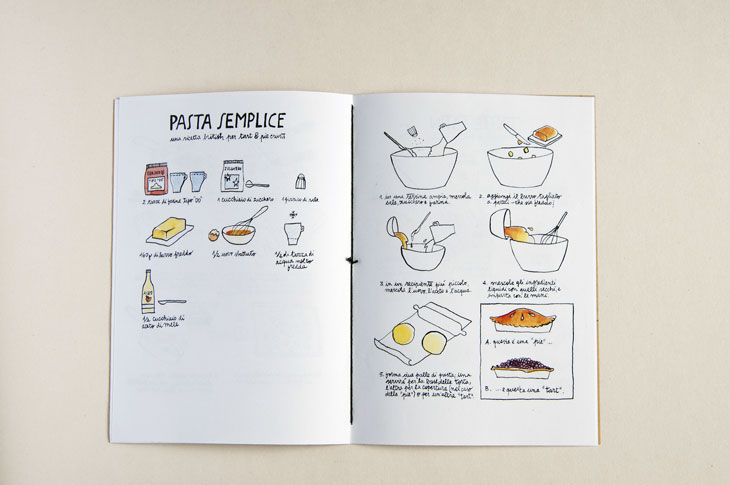 PASTA SEMPLICE
una ricetta british per tart & pie crust
2 tazze di farina tipo '00'
ZUCCHERO
1 cucchiaio di zucchero
1 pizzico di sale
di burro freddo
1/2 uovo sbattuto
di tazza di
acqua molto
fredda
1/2 cucchiaio di
aceto di mele
1. in una terrina ampia, mescola
sale, zucchero e farina.
2. aggiungi il burro tagliato
a pezzi - che sia freddo!
3. in un recipiente più piccolo,
mescola l'uovo, l'aceto e l'acqua.
4. mescola gli ingredienti
liquidi con quelli secchi, e
impasta con le mani.
5. forma due palle di pasta: una
servirà per la base della torta,
l'altra per la copertura (nel caso
della "pie") o per un'altra "tart".
A. questa è una "pie" ...
B. ... e questa una "tart".